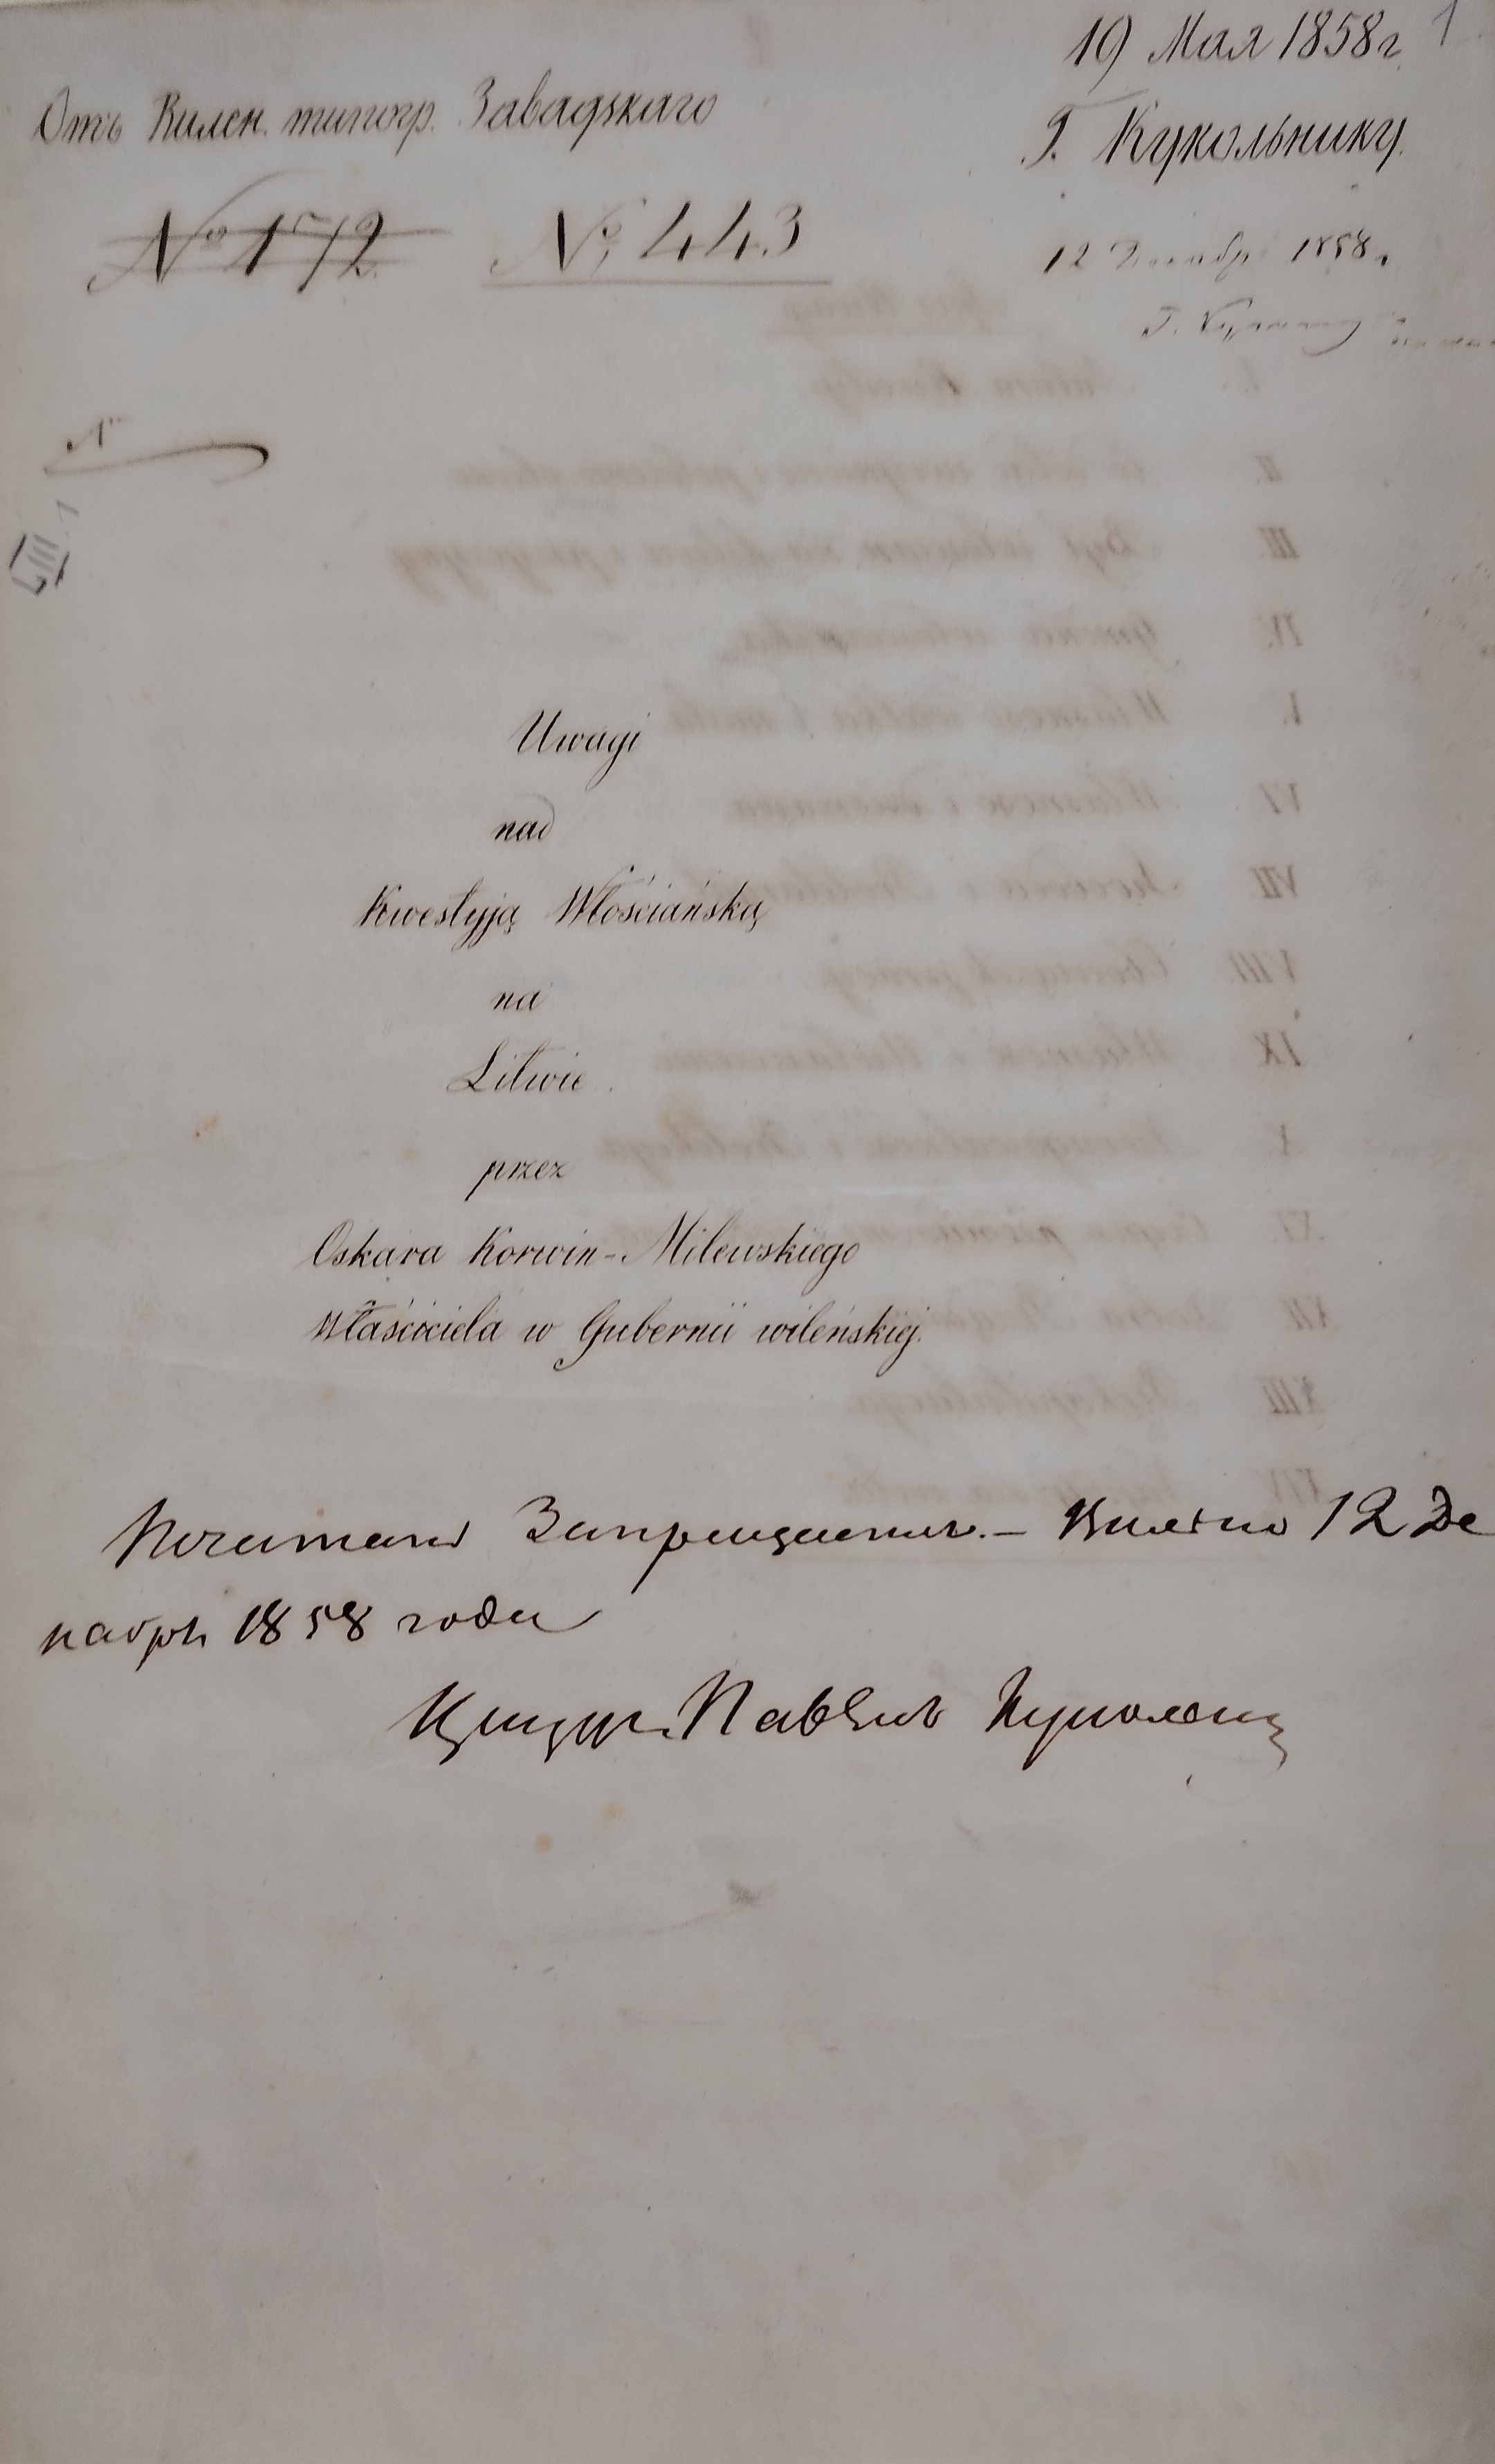 19 Мая 1858 г. 1
Отъ Вилен. типогр. Завадзкаго
Г. Кукольнику.
№ 172. № 443
12 Декабр 1858 г.
Г. Кукольнику
№
Uwagi
nad
Kwestyją Włościańską
na
Litwie
przez
Oskara Korwin-Milewskiego
Właściciela w Gubernii wileńskiej.
Печатать Запрещается. – Вильно 12 Де
кабря 1858 года
Ценсоръ Павелъ Кукольник